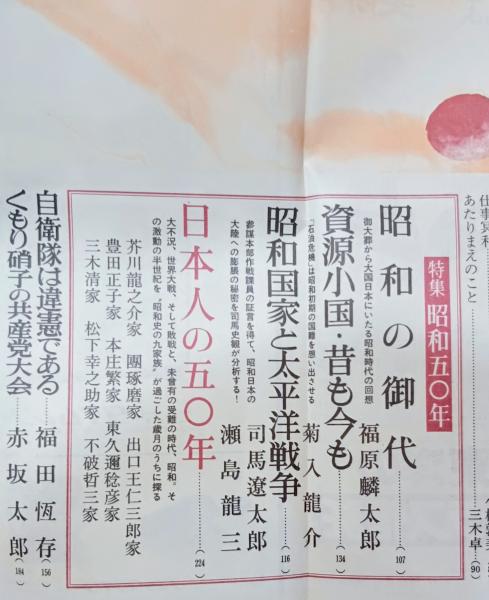 仕事冥利
あたりまえのこと
三木卓…(90)
特集 昭和五〇年
昭和の御代
御大葬から大国日本にいたる昭和時代の回想
福原麟太郎…(107)
資源小国・昔も今も
「石油危機」は昭和初期の国難を思い出させる
菊入龍介…(134)
昭和国家と太平洋戦争
参謀本部作戦課員の証言を得て、昭和日本の
大陸への膨脹の秘密を司馬史観が分析する!
司馬遼太郎
瀬島龍三…(116)
日本人の五〇年…(224)
大不況、世界大戦、そして敗戦と、未曽有の受難の時代、昭和。そ
の激動の半世紀を“昭和史の九家族”が過ごした歳月のうちに探る
芥川龍之介家 團琢磨家 出口王仁三郎家
豊田正子家 本庄繁家 東久邇稔彦家
三木清家 松下幸之助家 不破哲三家
自衛隊は違憲である…福田恆存(156)
くもり硝子の共産党大会…赤坂太郎(184)